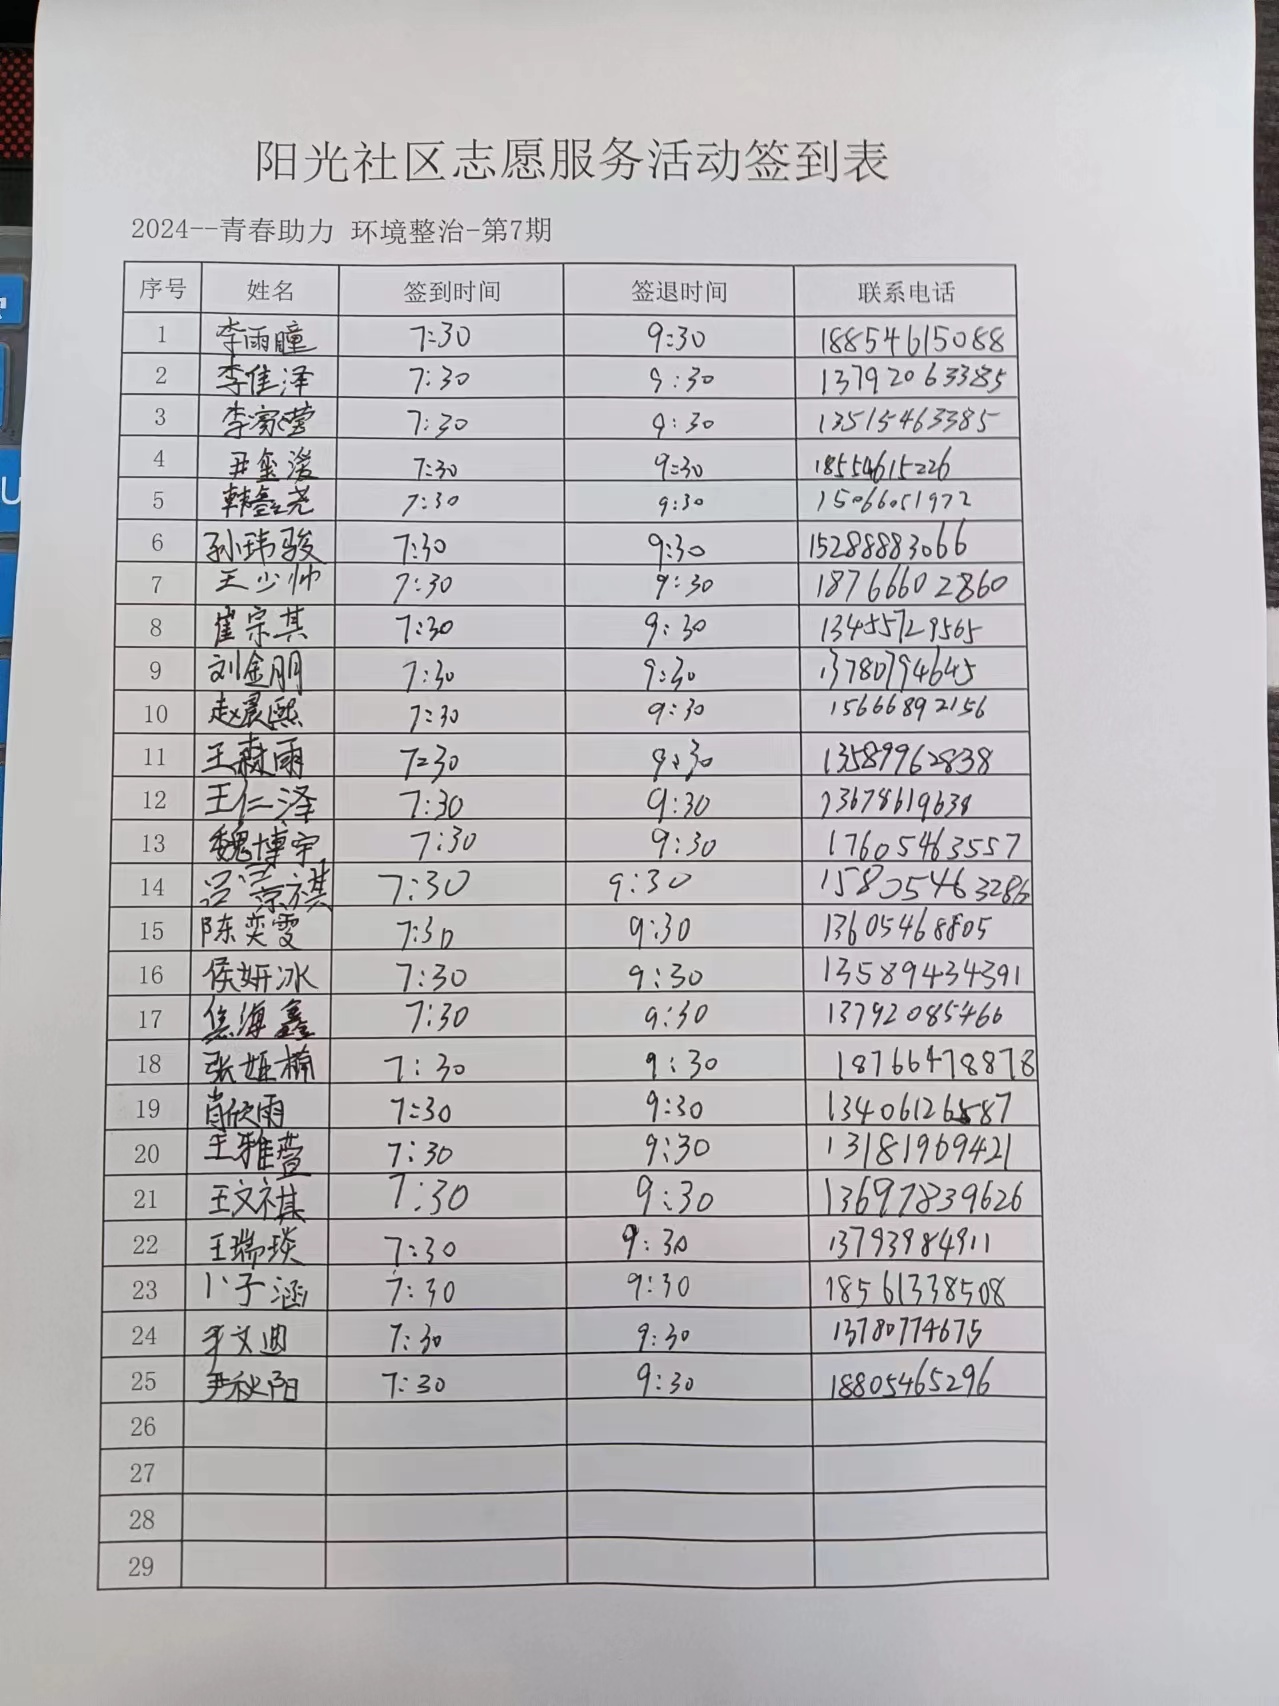 阳光社区志愿服务活动签到表
2024--青春助力 环境整治-第7期
序号 姓名 签到时间 签退时间 联系电话
1 李雨瞳 7:30 9:30 18854615088
2 李佳泽 7:30 9:30 13792063385
3 李家莹 7:30 9:30 13515463385
4 尹玺浚 7:30 9:30 18554615226
5 韩鑫尧 7:30 9:30 15066051972
6 孙玮骏 7:30 9:30 15288883066
7 王少帅 7:30 9:30 18766602860
8 崔宗其 7:30 9:30 13455729565
9 刘金朋 7:30 9:30 13780794645
10 赵晨熙 7:30 9:30 15666892156
11 王森雨 7:30 9:30 13589962838
12 王仁泽 7:30 9:30
13 魏博宇 7:30 9:30 17605463557
14 吕崇祺 7:30 9:30 15805463286
15 陈奕雯 7:30 9:30 13605468805
16 侯妍冰 7:30 9:30 13589434391
17 焦海鑫 7:30 9:30 13792085466
18 张姬楠 7:30 9:30 18766478878
19 肖欣雨 7:30 9:30 13406126587
20 王雅萱 7:30 9:30 13181969421
21 王文祺 7:30 9:30 13697839626
22 王瑞琰 7:30 9:30 13793984911
23 卜子涵 7:30 9:30 18561338508
24 文迪 7:30 9:30 13780774675
25 尹秋阳 7:30 9:30 18805465296
26
27
28
29